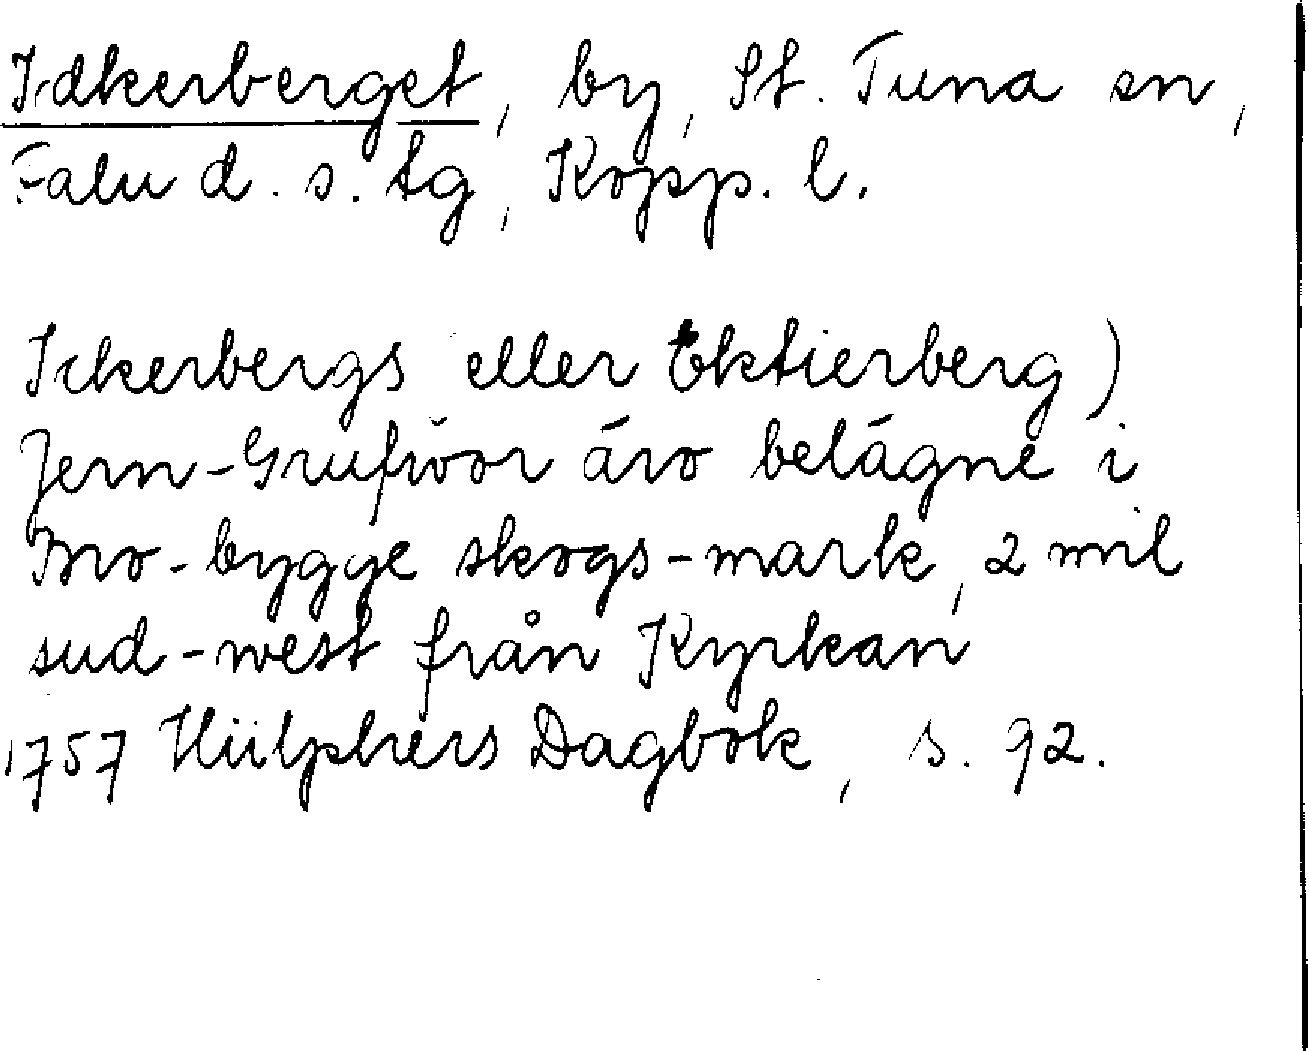 Idkerberget, by, St. Tuna sn,
Falu d. s. tg, Kopp. l.
Ickerbergs eller Ektierberg)
Jern-Grufwor äro belägne i
Bro-bygge skogs-mark, 2 mil
sud-west från Kyrkan
1757 Hülphers Dagbok, s. 92.